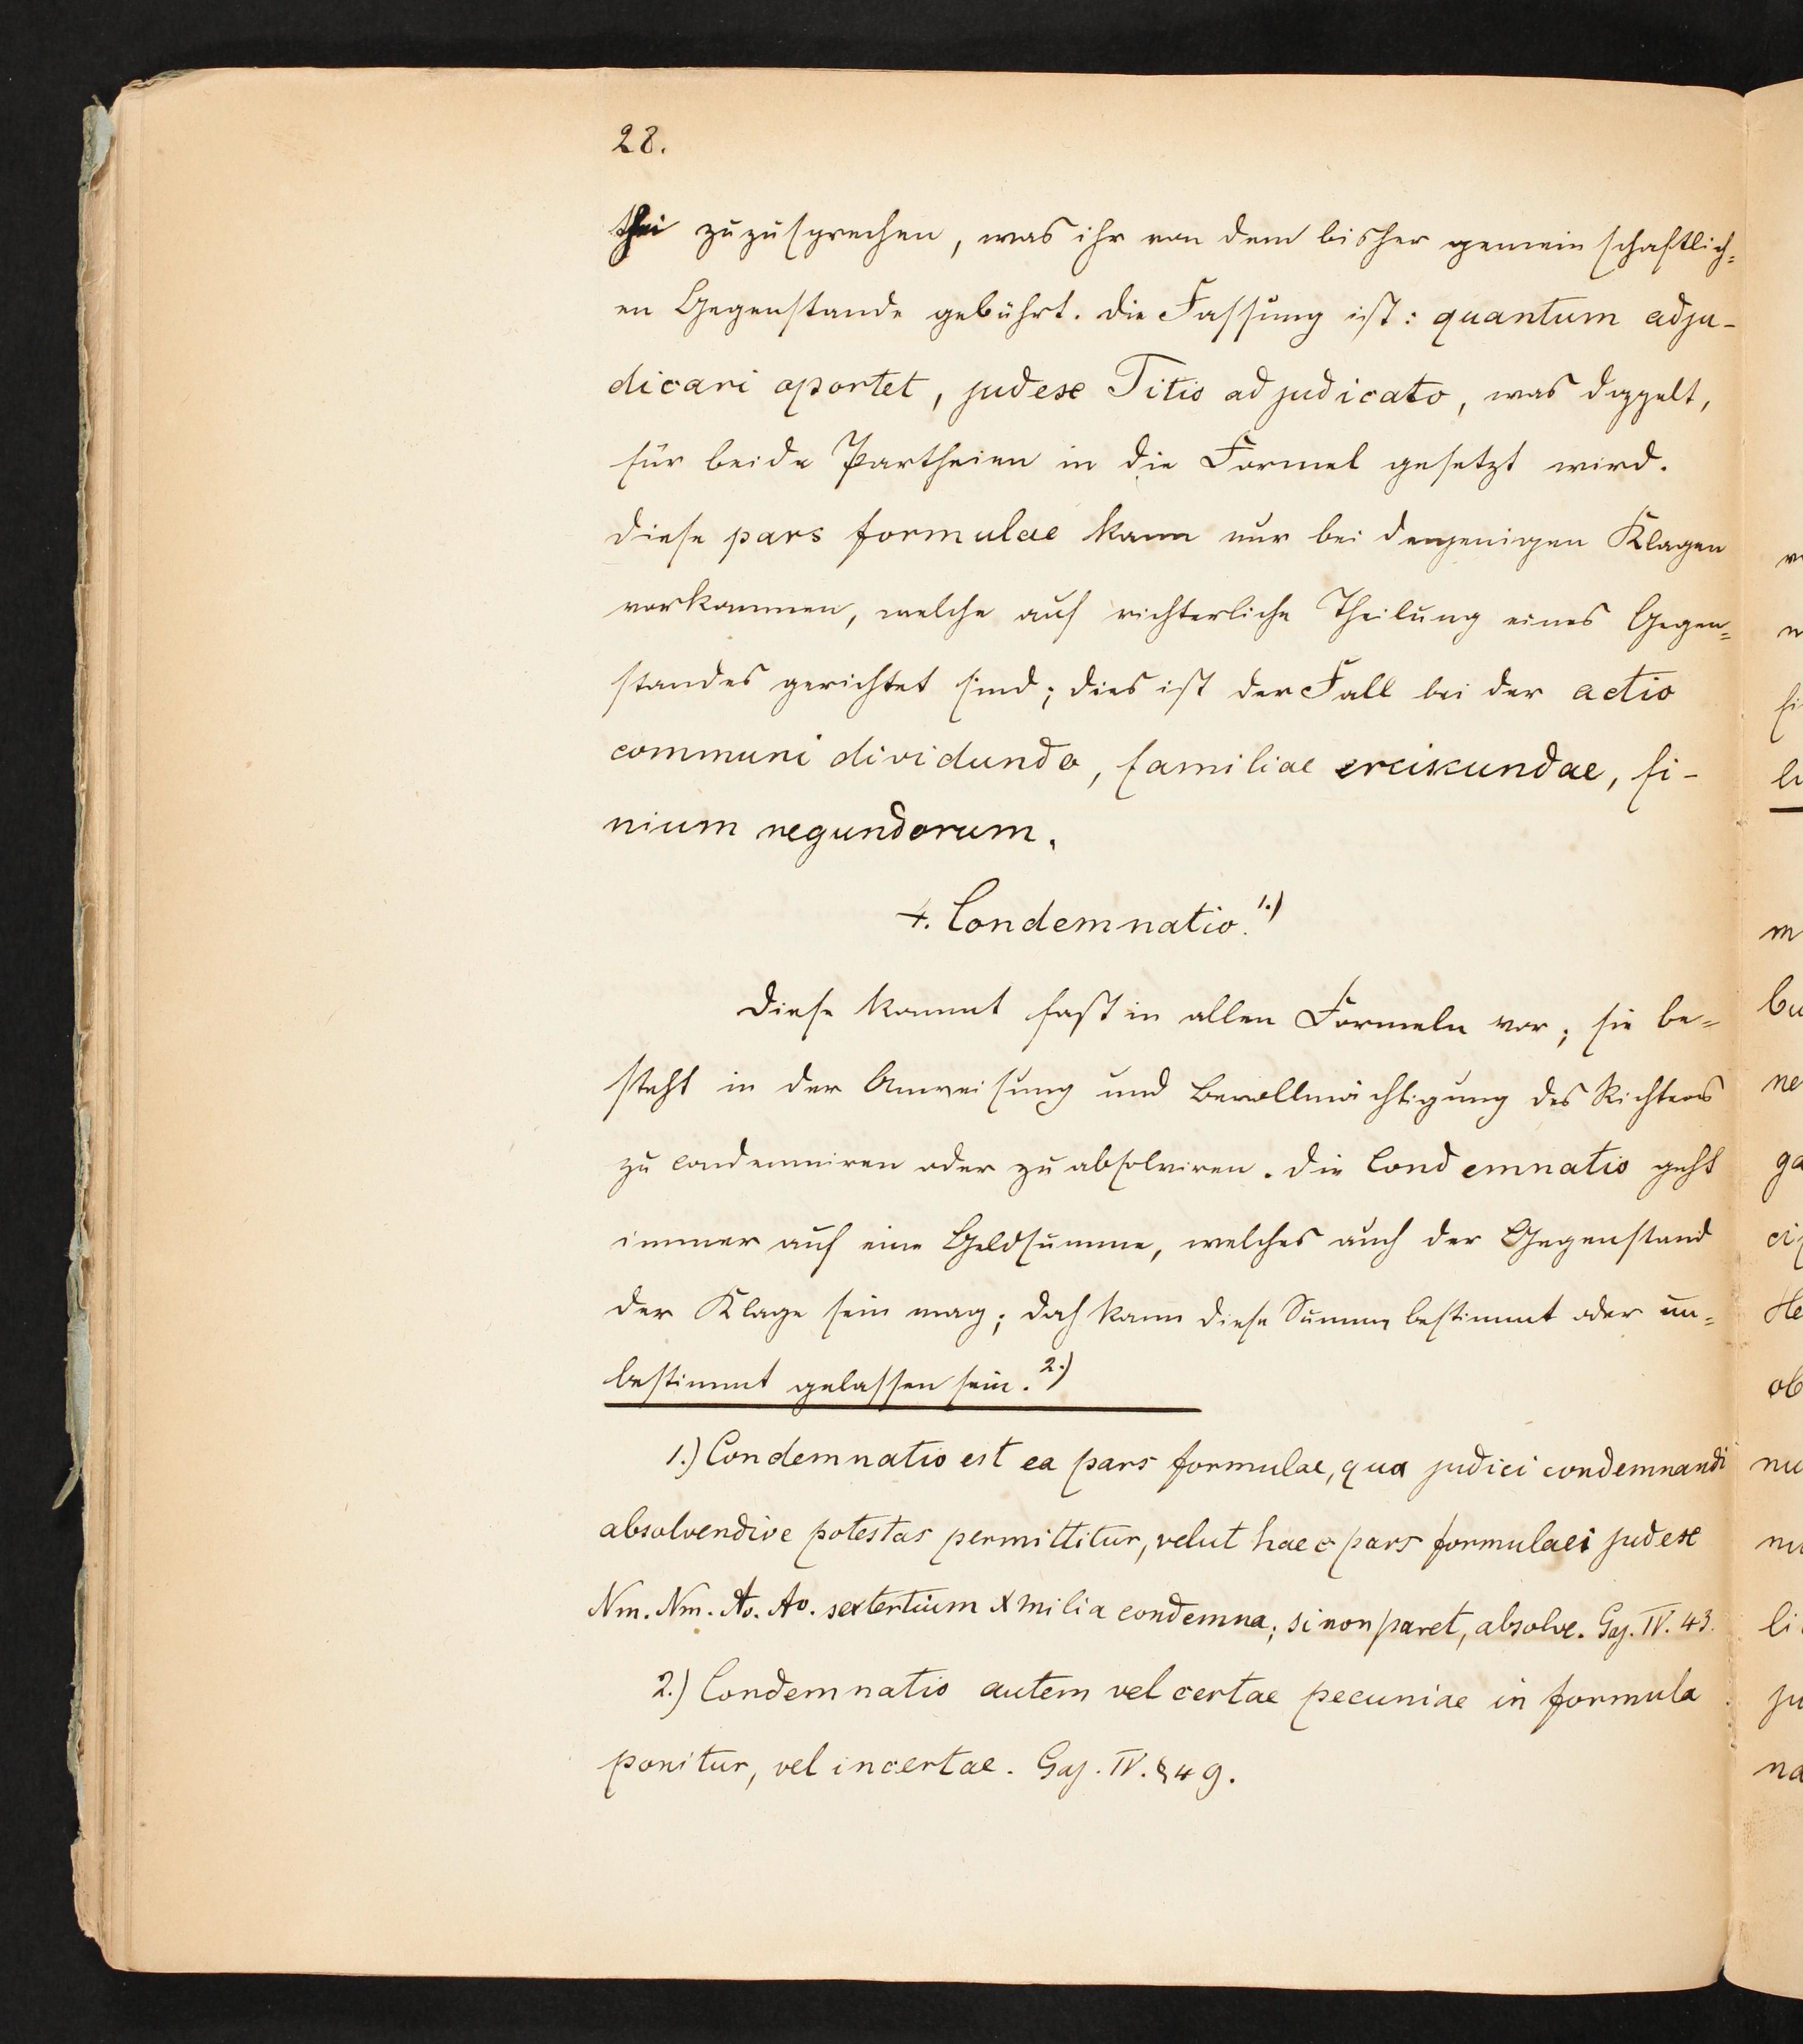 28.
thei zuzusprechen, was ihr von dem bisher gemeinschaftlich=
en Gegenstande gebührt. Die Fassung ist: quantum adju-
dicari oportet, judex Titio adjudicato, was doppelt,
für beide Partheien in die Formel gesetzt wird.
Diese pars formulae kann nur bei denjenigen Klagen
vorkommen, welche auf richterliche Theilung eines Gegen=
standes gerichtet sind; dies ist der Fall bei der actio
communi dividundo, familiae erciscundae, fi-
nium regundorum.
4. Condemnatio. 1.)
Diese kommt fast in allen Formeln vor; sie be=
steht in der Anweisung und Bevollmächtigung des Richters
zu condemniren oder zu absolviren. Die Condemnatio geht
immer auf eine Geldsumme, welches auch der Gegenstand
der Klage sein mag; doch kann diese Summe bestimmt oder un=
bestimmt gelassen sein. 2.)
1.) Condemnatio est ea pars formulae, qua judici condemnandi
absolvendive potestas permittitur, velut haec pars formulae: judex
Nm. Nm. Ao. Ao. sextertium X milia condemna; si non paret, absolve. Gaj. IV. 43.
2.) Condemnatio autem vel certae pecuniae in formula
ponitur, vel incertae. Gaj. IV. § 49.